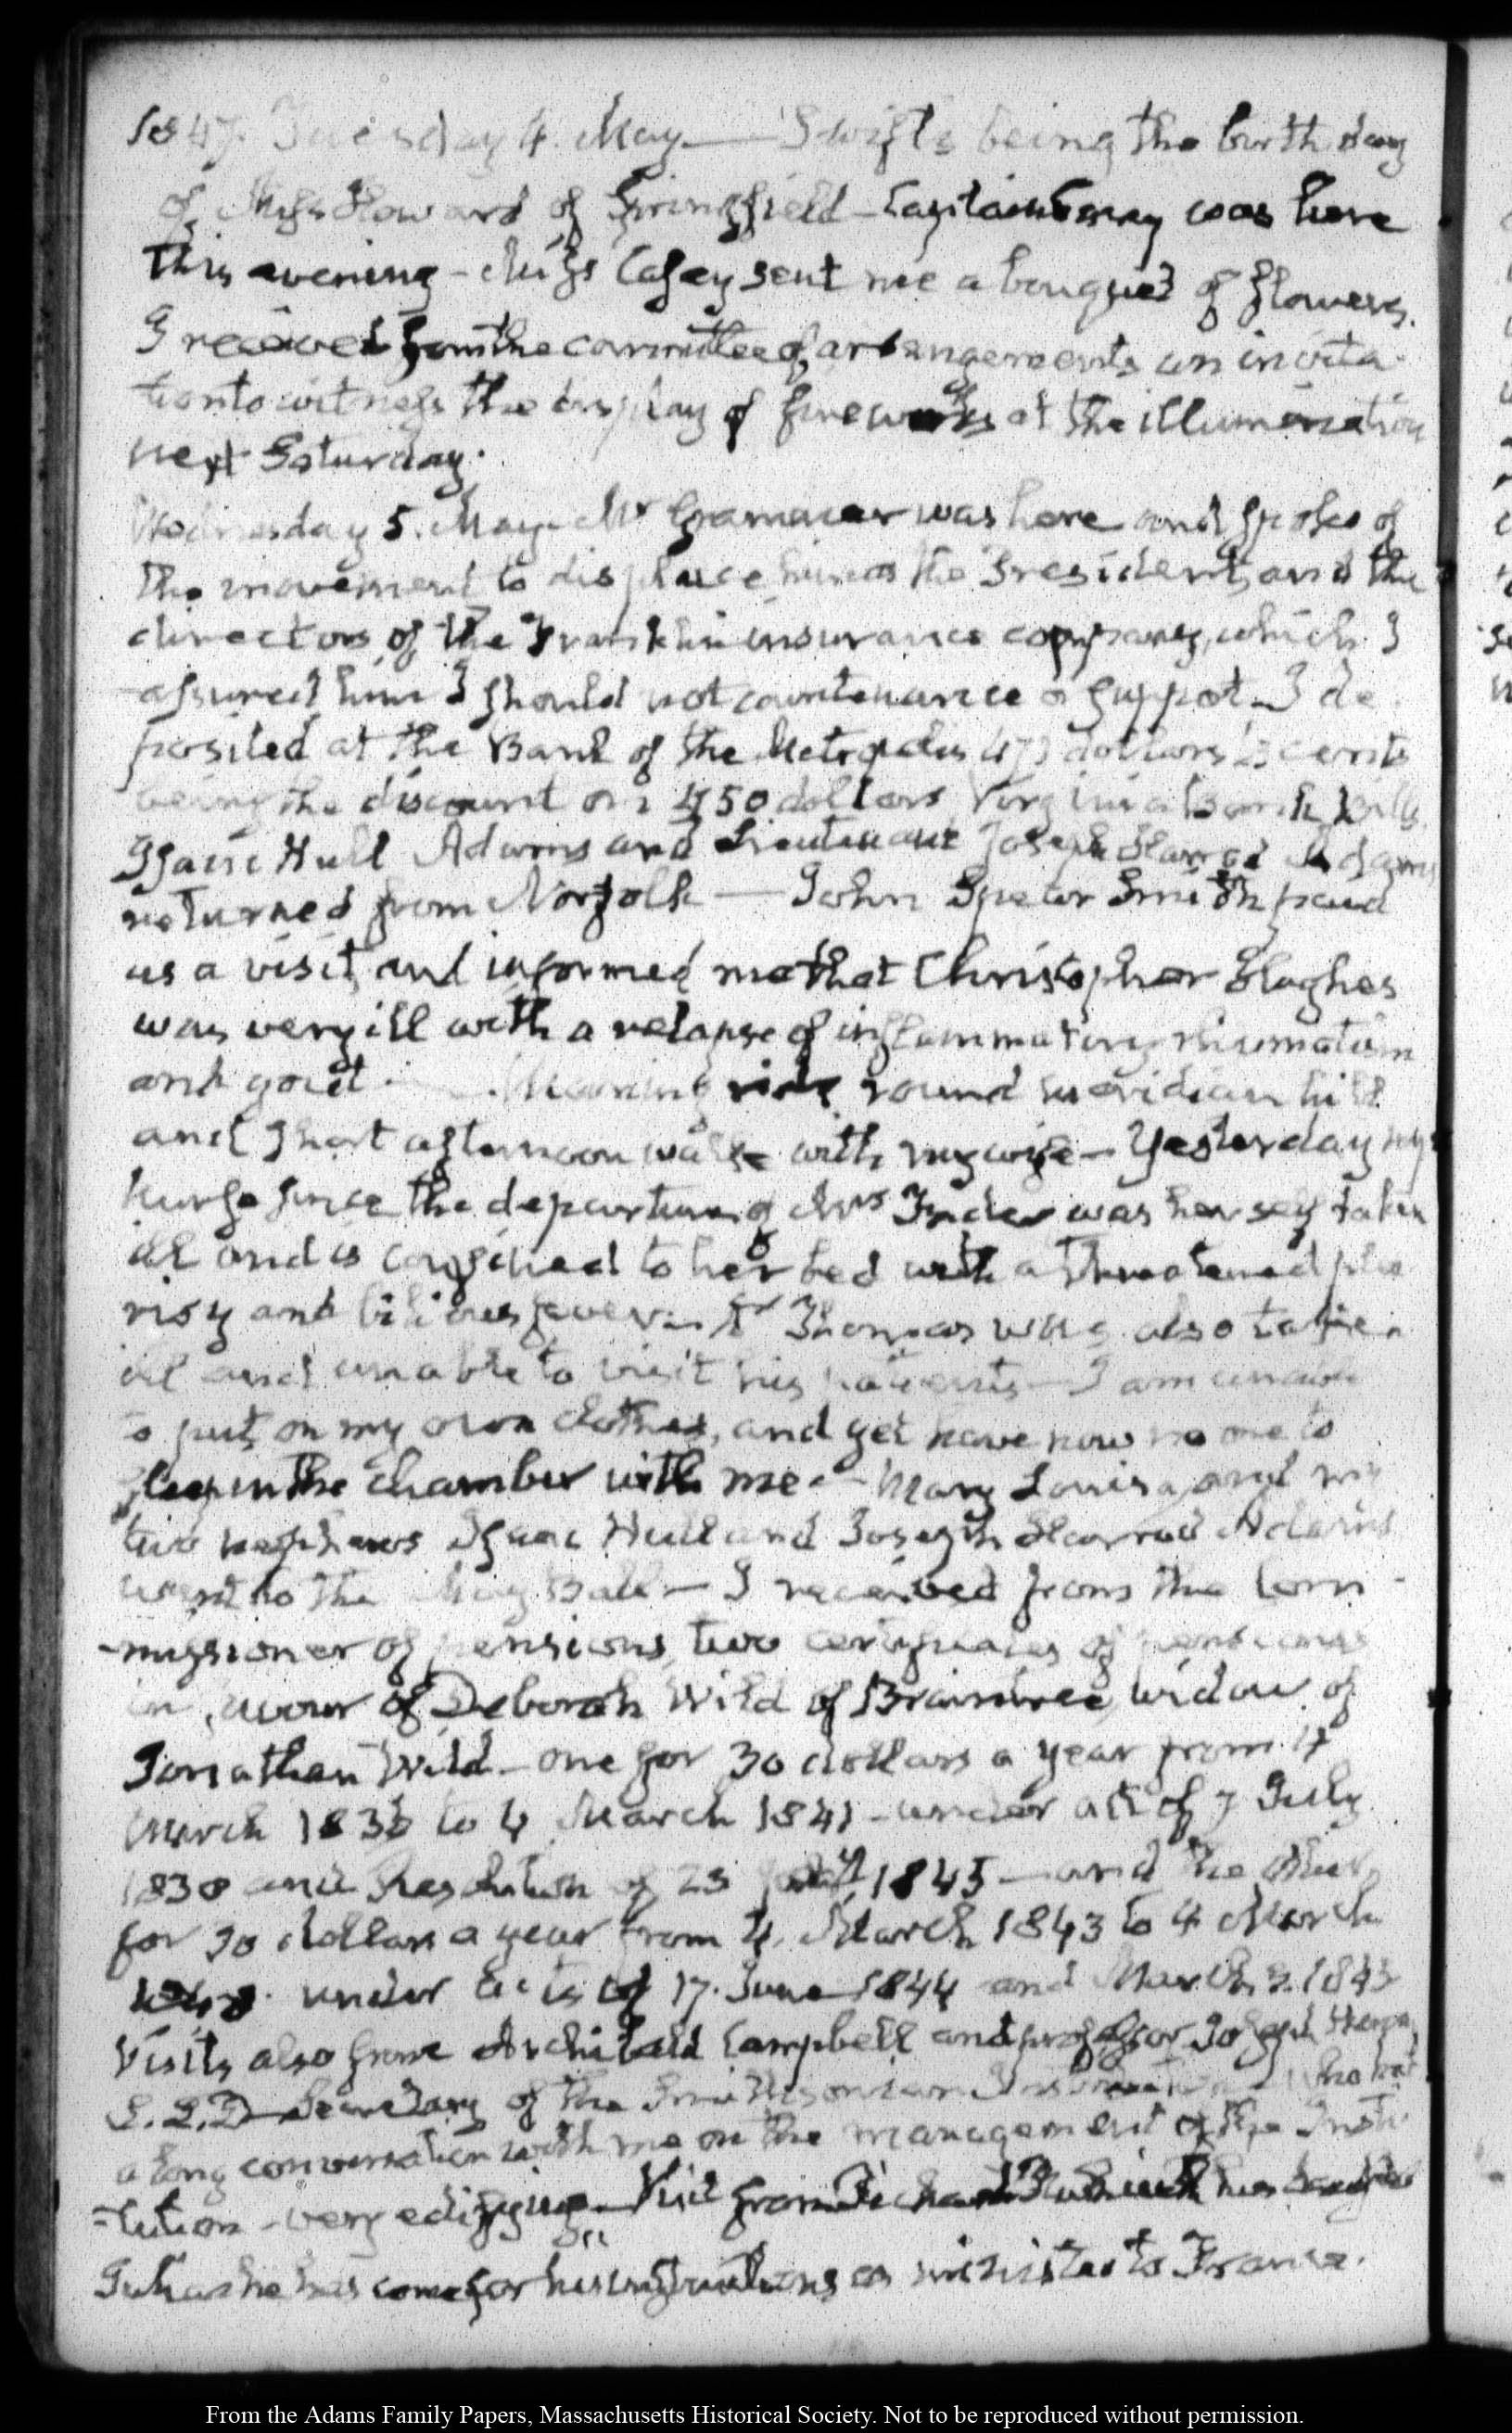 1847. Tuesday 4. May — Swifts being the birth day
of Miss Howard of Springfield — Captain was here
this evening — Miss Casey sent me a bouquet of flowers.
I received from the committee of arrangements an invita-
tion to witness the display of fireworks at the illumination
next Saturday.
Wednesday 5. May. Mr was here and spoke of
the movement to displace him as the President, and the
directors of the Franklin insurance company, which I
assured him I should not countenance or support. I de
posited at the Bank of the Metropolis dollars cents
being the discount on 450 dollars Virginia Bank bills.
Isaac Hull Adams and Lieutenant Joseph Harrod Adams
returned from Norfolk — John Spear Smith paid
us a visit, and informed me that Christopher Hughes
was very ill with a relapse of inflammatory rheumatism
and gout — Morning ride round meridian hill
and short afternoon walk with my wife — Yesterday my
Nurse since the departure of Mrs was herself taken
ill and is confined to her bed with a threatened pleu
risy and bilious fever — Dr Thomas was also taken
ill and unable to visit his patients — I am unable
to put on my own clothes, and yet have now no one to
sleep in the chamber with me — Mary Louisa, and my
two nephews Isaac Hull and Joseph Harrod Adams
went to the May Ball — I received from the Com-
-missioner of pensions, two certificates of pensions
in favour of Deborah Wild of Braintree, widow of
Jonathan Wild — one for 30 dollars a year from 4
March 1836 to 4 March 1841 — under act of 7 July
1838 and Resolution of 23 1845 — and the other
for 30 dollars a year from 4. March 1843 to 4 March
1848. under Acts of 17. June 1844 and March 3. 1843
Visits also from Archibald Campbell and professor Joseph Henry
L.L.D. Secretary of the Smithsonian Institution who had
a long conversation with me on the management of the Insti-
-tution — very edifying — Visit from Richard Rush with his daughter
Julia he has come for his instructions as minister to France.
From the Adams Family Papers, Massachusetts Historical Society. Not to be reproduced without permission.